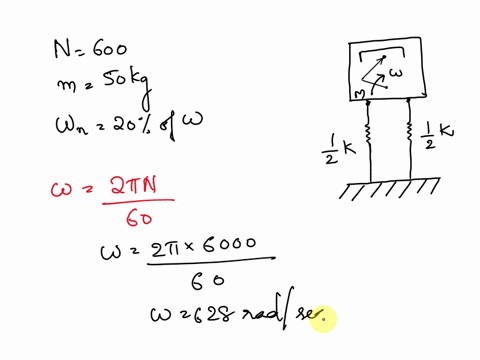 N = 600
m = 50 kg
ωn = 20% of ω
ω = 2πN
60
ω = 2π × 6000
60
ω = 628 rad/sec.
ω
m
1/2 K
1/2 K